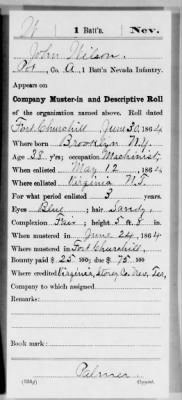 W 1 Batt'n. Nev.
John Wilson.
Pvt., Co. A, 1 Batt'n Nevada Infantry.
Appears on
Company Muster-in and Descriptive Roll
of the organization named above. Roll dated
Fort Churchill, June 30, 1864
Where born Brooklyn N.Y.
Age 38 y'rs; occupation Machinist
When enlisted May 12, 1864
Where enlisted Virginia N.T.
For what period enlisted 3 years.
Eyes Blue; hair Sandy.
Complexion Fair; height 5 ft. 8 in.
When mustered in June 24, 1864
Where mustered in Fort Churchill.
Bounty paid $ 25 100; due $ 75 100
Where credited Virginia, Storey Co. Nev. Ter.
Company to which assigned
Remarks:
Book mark:
Palmer
Copyist.